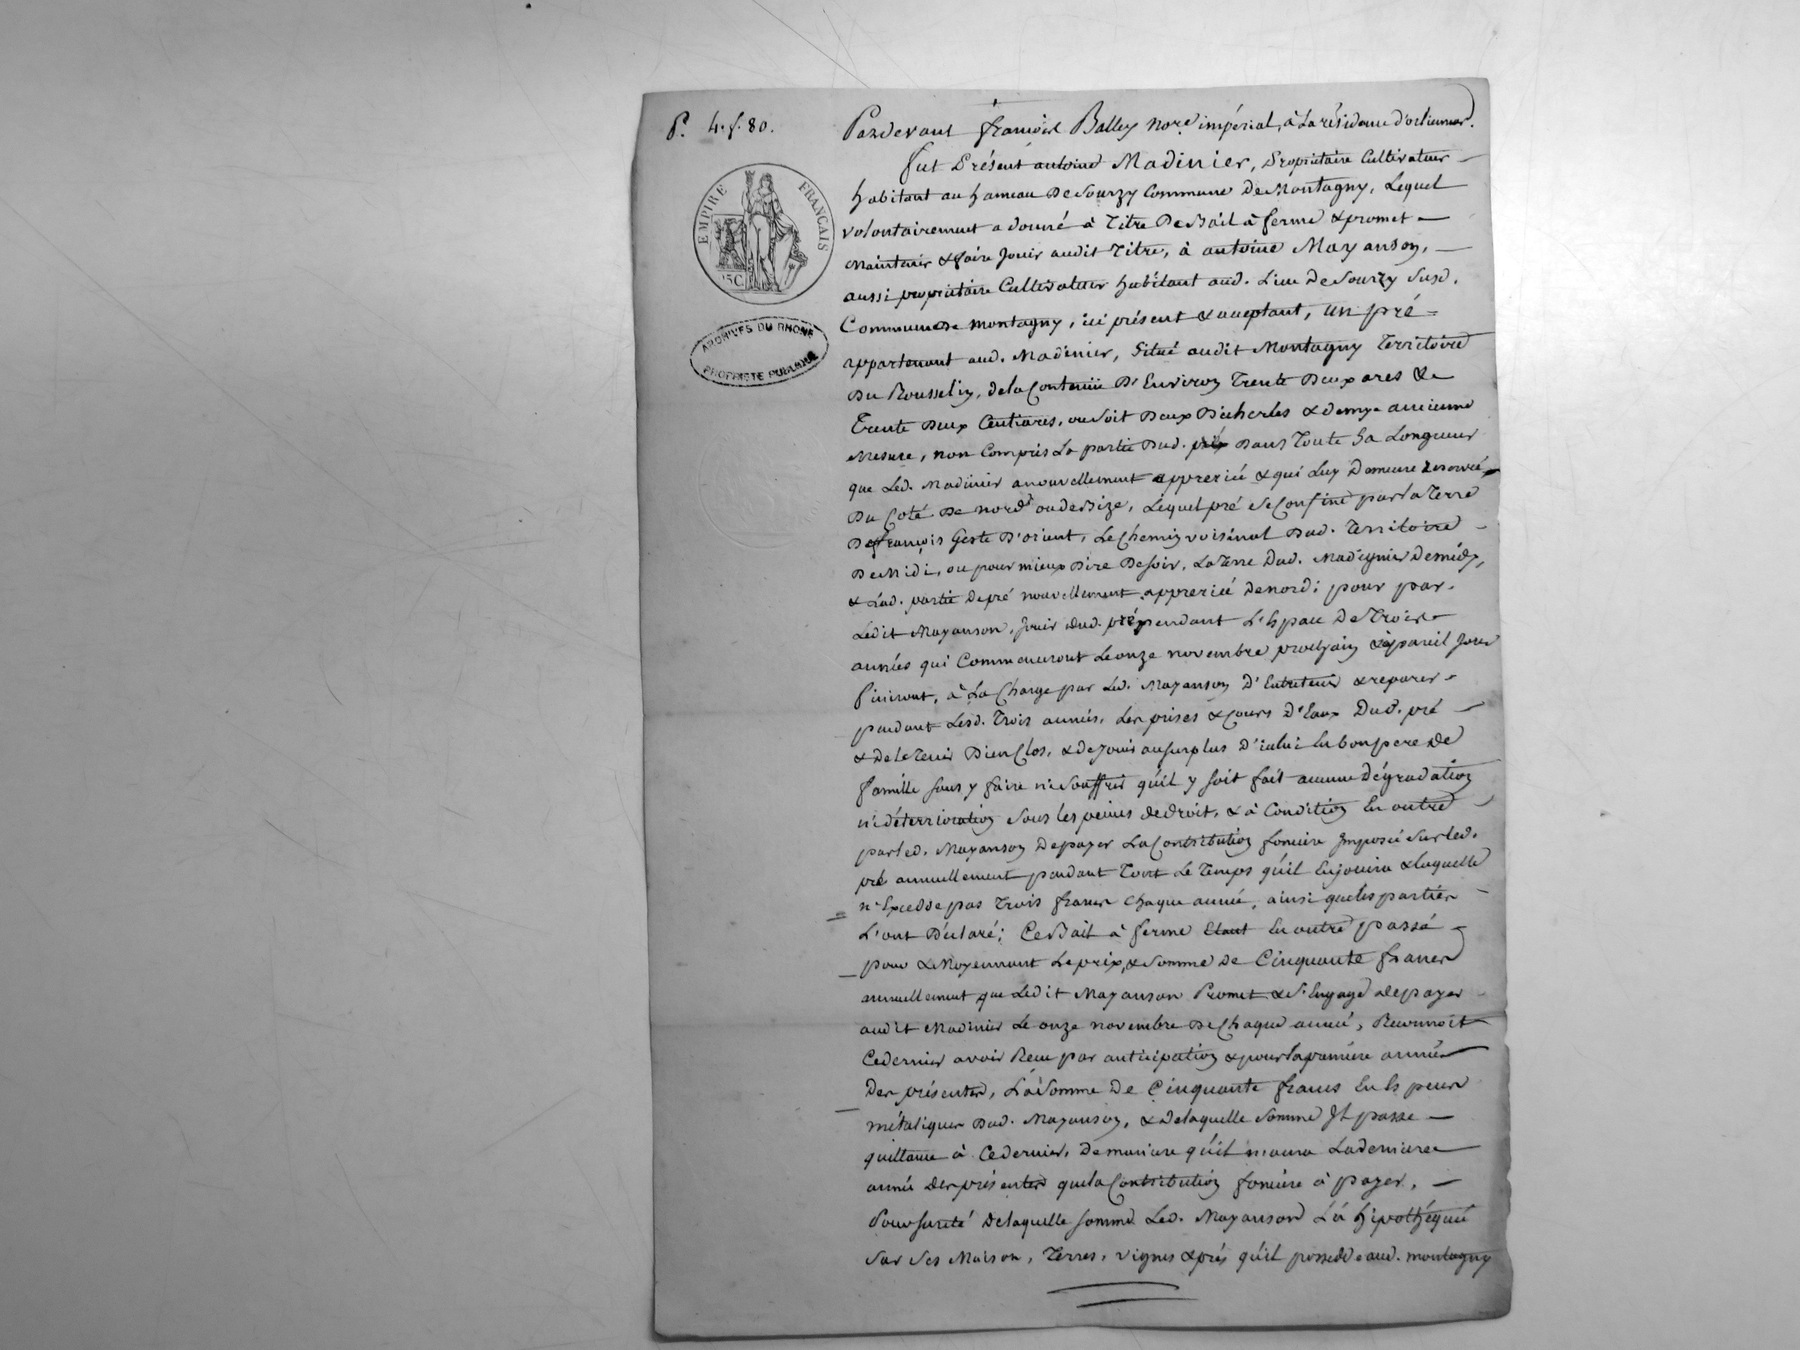 P. 4.f.80.
Pardevant françois Balley no.re impérial, à la résidence d'orliennas.
EMPIRE FRANÇAIS
75C
fut Présent antoine Madinier, Propriétaire Cultivateur
habitant au hameau De Sourzy Commune De Montagny, Lequel
volontairement a donné à Titre De Bail à ferme & promet
Maintenir & faire Jouir audit Titre, à antoine Mayanson,
aussi propriétaire Cultivateur habitant aud. Lieu De Sourzy Susd.
Commune De montagny, ici présent & acceptant, un pré
ARCHIVES DU RHONE
PROPRIETE PUBLIQUE
appartenant aud. Madinier, Situé audit Montagny Territoire
Du Rousselin, De la Contenüe D'Environ Trente Deux ares &
Trente Deux Centiares, ou Soit Deux Bicherées & demy ancienne
Mesure, non Compris La partie Dud. pré Dans Toute Sa Longueur
que Led. Madinier a nouvellement & qui Luy Demeure
Du Coté De nord ou de Bize, Lequel pré Se Confine par la Terre
De françois Geste D'orient, Le Chemin voisinal Dud. Territoire
De Midi, ou pour mieux Dire De Soir, La Terre Dud. Madinier De midy,
& Lad. partie De pré nouvellement de nord; pour par
Ledit Mayanson, Jouir Dud. pré pendant L'Espace De Trois
années qui Commenceront Le onze novembre prochain & à pareil Jour
finiront, à La Charge par Led. Mayanson D'Entretenir & reparer
pendant Lesd. Trois années, Les prises & Cours D'Eaux Dud. pré
& de le Tenir Bien Clos, & de Jouir au Surplus D'icelui En bon pere de
famille sans y faire ni Souffrir qu'il y soit fait aucune Dégradation
ni déterrioration Sous les peines de droit, & à Condition En outre
par led. Mayanson De payer La Contribution fonciere Imposée Sur led.
pré annuellement pendant Tout Le Temps qu'il En jouira & laquelle
n'Excedde pas Trois francs Chaque année, ainsi que les parties
L'ont Déclaré; Ce Bail à ferme Etant En outre passé
pour & Moyennant Le prix & Somme De Cinquante francs
annuellement que Ledit Mayanson Promet & S'Engage De payer
audit Madinier Le onze novembre De Chaque année, Reconnoit
Ce dernier avoir Recu par anticipation & pour la premiere année
Des présentes, La Somme De Cinquante francs En Especes
métaliques Dud. Mayanson, & de laquelle Somme Il passe
quittance à Ce dernier, De maniere qu'il n'aura La derniere
année Des présentes que la Contribution fonciere à payer,
Pour sureté De laquelle somme Led. Mayanson L'a hipothéquée
Sur Ses Maison, Terres, vignes & prés qu'il possedde aud. montagny